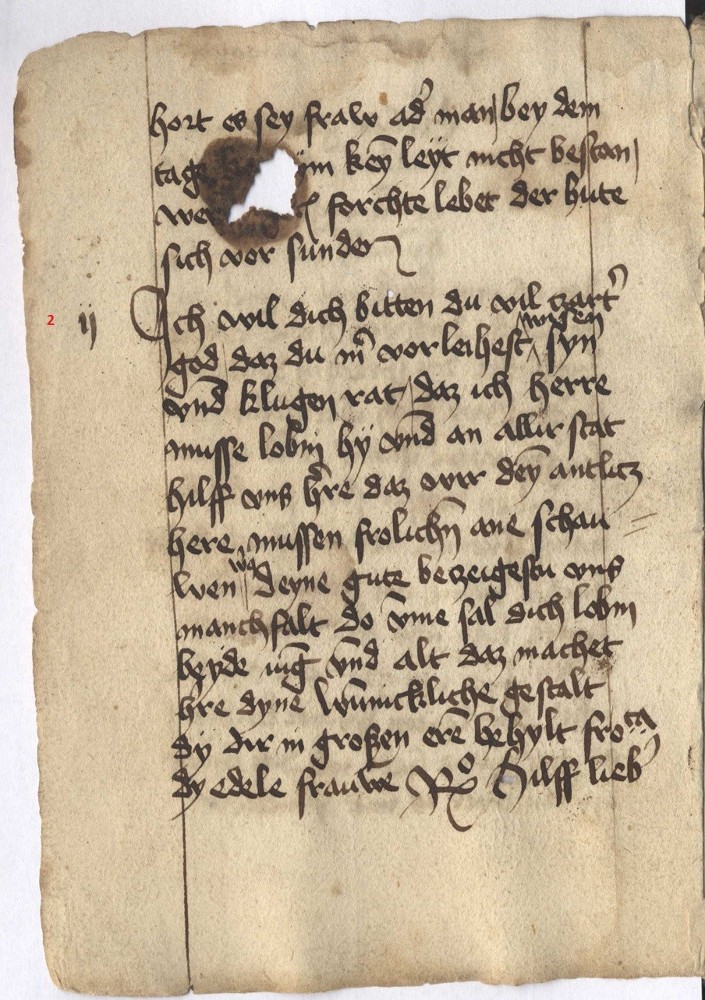 hort es sey fraw ad' man / bey dem
tage im keȳ leyt nicht bestan /
wer forchte lebet der hute
sich vor sunden
2 ij Ich wil dich bitten du vil czart'
god / daz du m' vorleihest wysen syn
vnd klugen rat / daz ich herre
musse lobin hy vnd an allir stat
hilff vns h're daz wir deȳ antlicz
here mussen frolichn ane schau =
wen wā deyne gute beczeigestu vns
manchfalt do v̄me sal dich lobin
beyde iūg vnd alt daz machet
h're dyne wūnickliche gestalt
dy dir in großen erē behylt frota
dy edele frauwe Ro Hilff lieb'